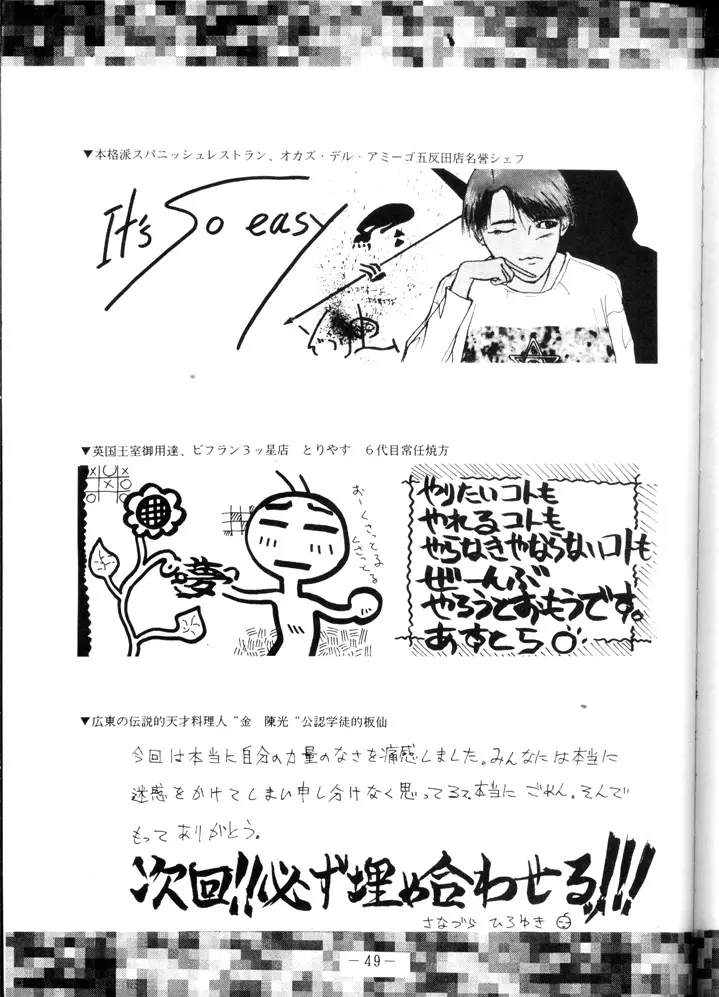 ▼本格派スパニッシュレストラン、オカズ・デル・アミーゴ五反田店名誉シェフ
It's So easy
▼英国王室御用達、ビフラン３ッ星店　とりやす　６代目常任焼方
×○×
×○
○
おーくさってる
くさってる
夢
やりたいコトも
やれるコトも
やらなきゃならないコトも
ぜーんぶ
やろうとおもうです。
あすとら
▼広東の伝説的天才料理人“金　陳光“公認学徒的板仙
今回は本当に自分の力量のなさを痛感しました。みんなには本当に
迷惑をかけてしまい申し分けなく思ってるで、本当に ごめん。そんで
もって ありがとう。
次回!!必ず埋め合わせる!!!
さなづら ひろゆき
—49—